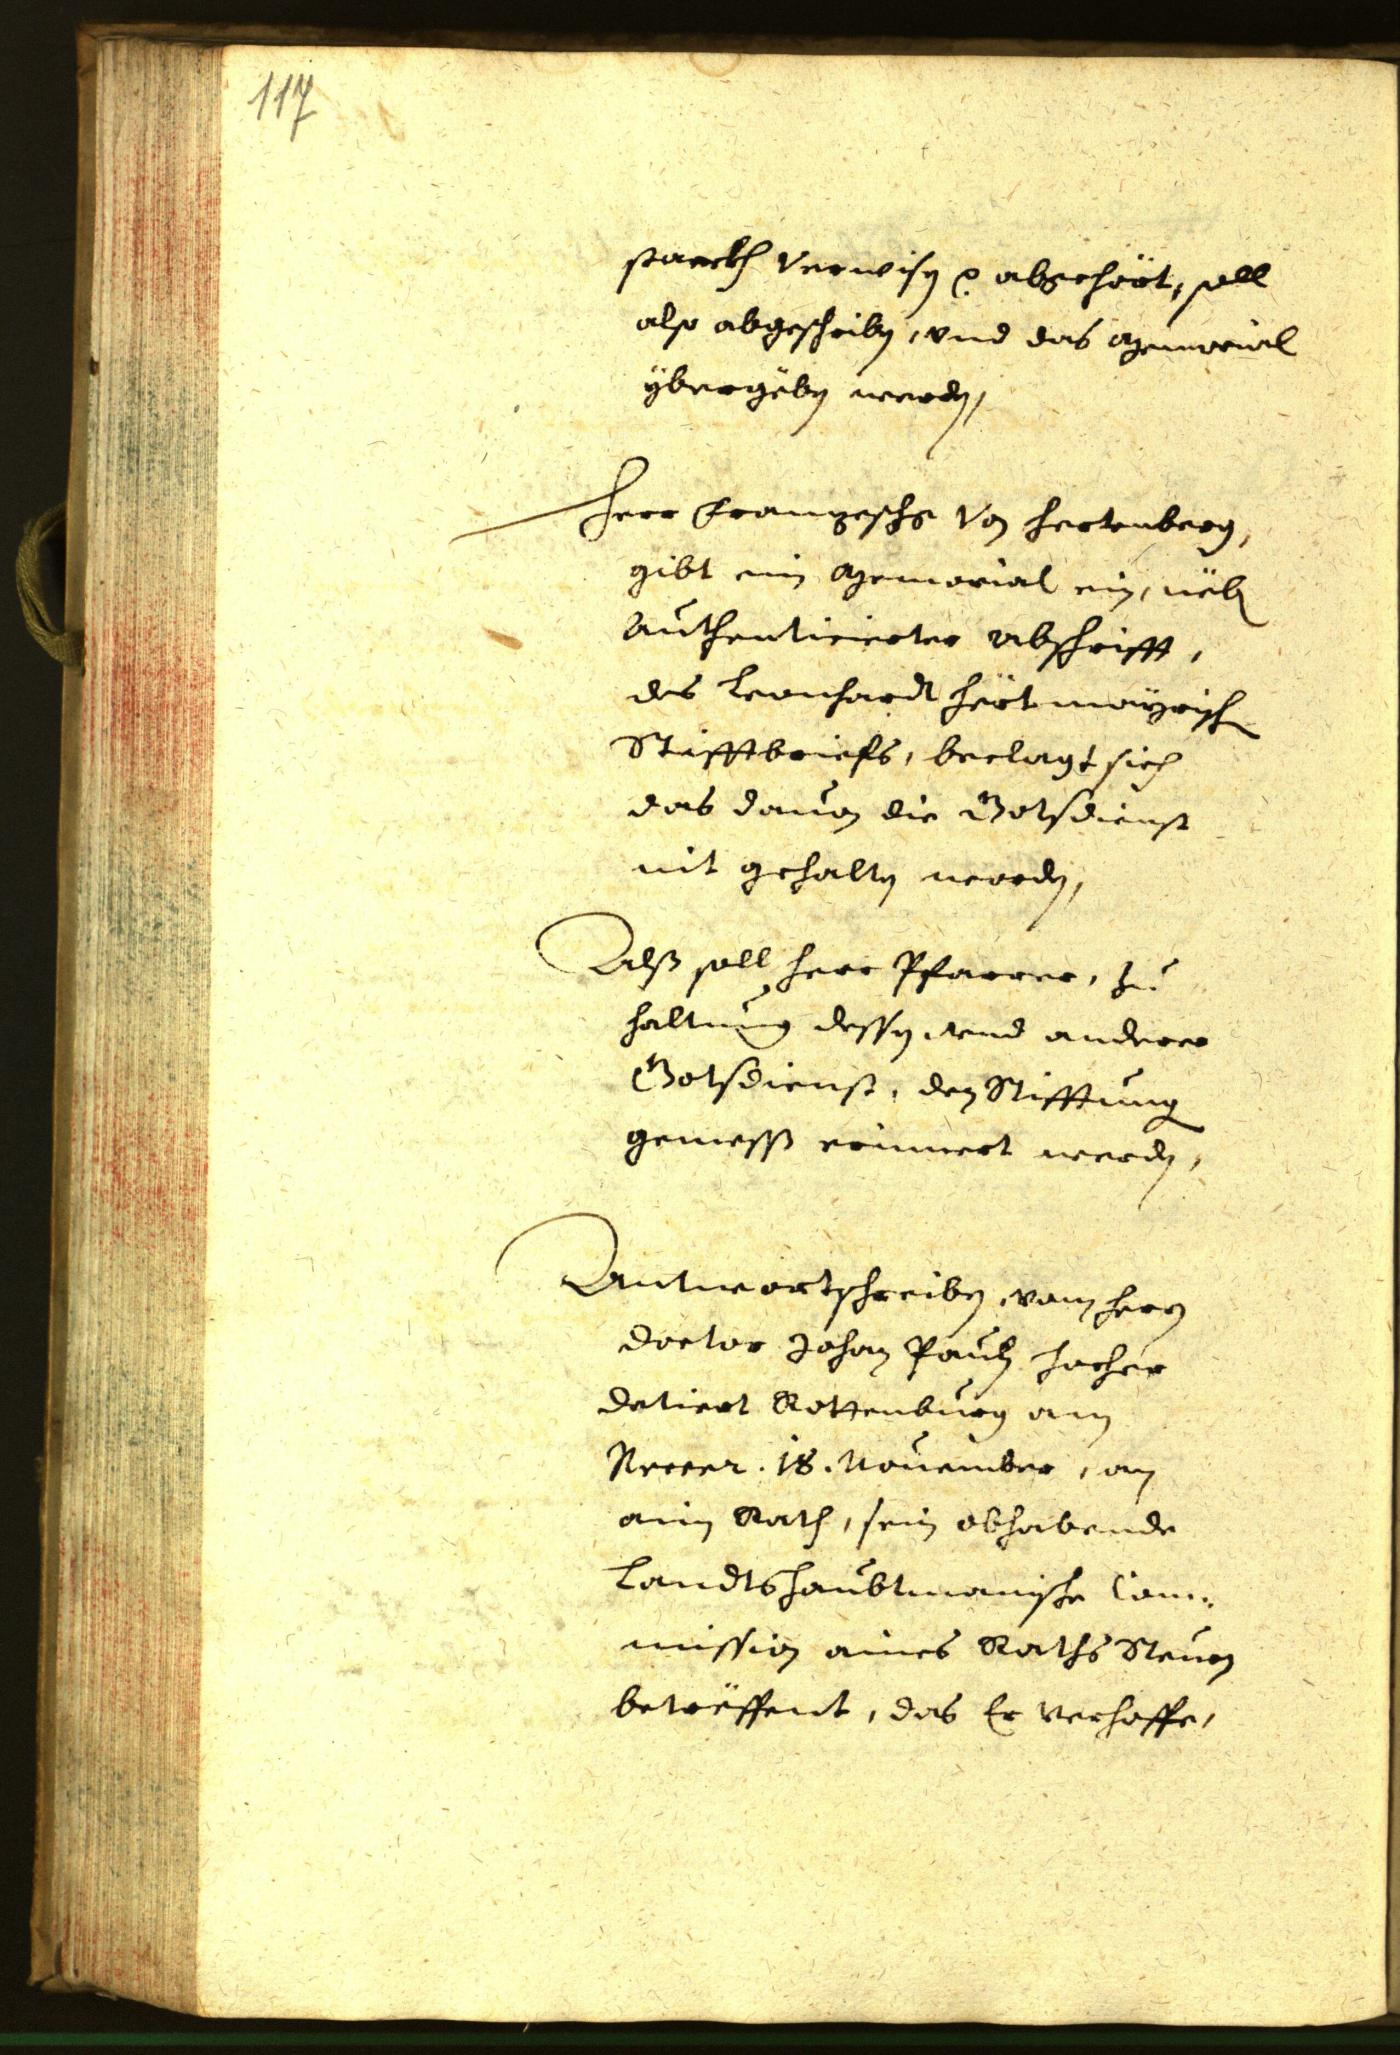 117
starckh verwisen etc. abgehört, soll
also abgeschriben, vnd das Memorial
ÿbergëben werden,
Herr Frangeschg von Hertenberg,
gibt ein Memorial ein, nëben
Authenticierter Abschrifft,
des Leonhardt Hërtmayrisch
Stifftbriefs, beclagt sich
das dauon die Gotsdienst
nit gehalten werden,
Alß soll Herr Pfarrer, zu
haltung dessen vnd anderer
Gotsdienst, den Stifftung
gemeß erinnert werden,
Antwortschreiben, vom Hern
Doctor Johan Paul Hocher
datiert Rottenburg am
Necer. 18. Nouember, an
ain Rath, sein obhabende
Landtshaubtmanische Com:
mission aines Raths Steurn
betrëffent, das Er verhoffe,